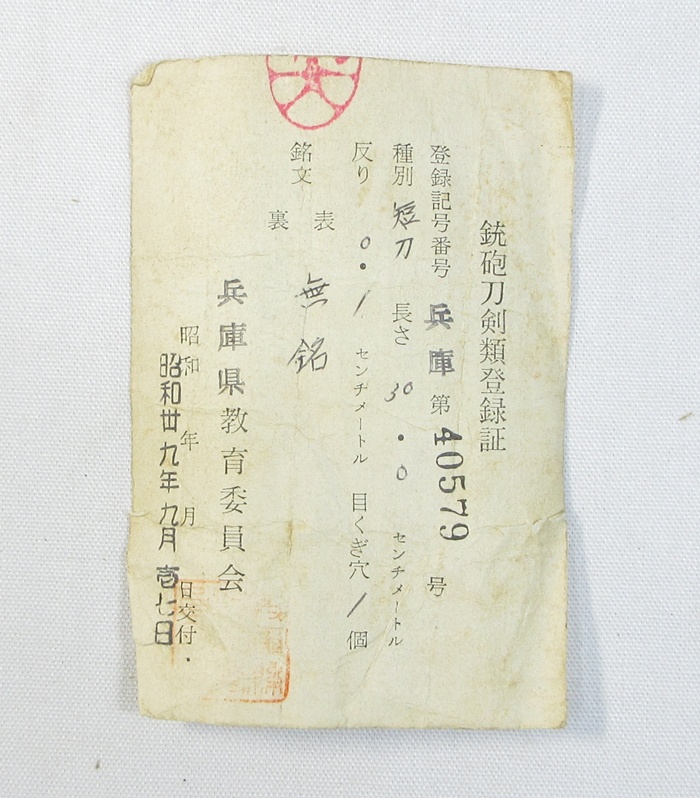 銃砲刀剣類登録証
登録記号番号 兵庫 第 40579 号
種別 短刀 長さ 30.0 センチメートル
反り 0.1 センチメートル 目くぎ穴 1 個
銘文 表 無銘
裏
兵庫県教育委員会
昭和 年 月 日交付.
昭和廿九年九月壱七日